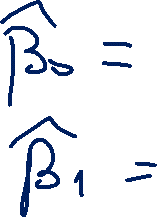 β̂₀ =
β̂₁ =